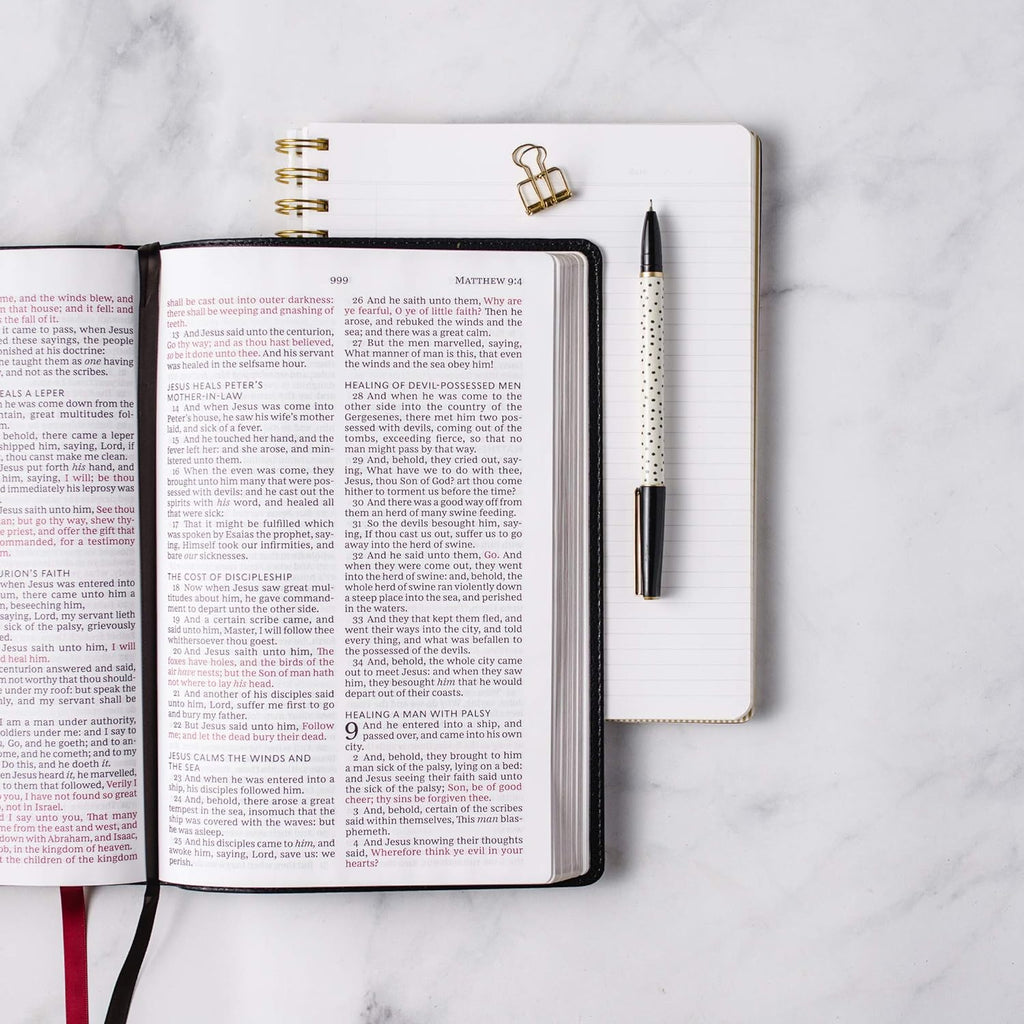 me, and the winds blew, and
n that house; and it fell: and
s the fall of it.
it came to pass, when Jesus
ed these sayings, the people
onished at his doctrine:
he taught them as one having
y, and not as the scribes.
EALS A LEPER
n he was come down from the
ntain, great multitudes fol-
m.
behold, there came a leper
shipped him, saying, Lord, if
, thou canst make me clean.
Jesus put forth his hand, and
him, saying, I will; be thou
d immediately his leprosy was
.
Jesus saith unto him, See thou
an; but go thy way, shew thy-
e priest, and offer the gift that
ommanded, for a testimony
m.
URION'S FAITH
when Jesus was entered into
um, there came unto him a
, beseeching him,
saying, Lord, my servant lieth
sick of the palsy, grievously
ed.
Jesus saith unto him, I will
d heal him.
centurion answered and said,
m not worthy that thou should-
under my roof: but speak the
nly, and my servant shall be
I am a man under authority,
oldiers under me: and I say to
, Go, and he goeth; and to an-
ome, and he cometh; and to my
Do this, and he doeth it.
en Jesus heard it, he marvelled,
to them that followed, Verily I
you, I have not found so great
, not in Israel.
d I say unto you, That many
me from the east and west, and
down with Abraham, and Isaac,
ob, in the kingdom of heaven.
t the children of the kingdom
999
MATTHEW 9:4
shall be cast out into outer darkness:
there shall be weeping and gnashing of
teeth.
13 And Jesus said unto the centurion,
Go thy way; and as thou hast believed,
so be it done unto thee. And his servant
was healed in the selfsame hour.
JESUS HEALS PETER'S
MOTHER-IN-LAW
14 And when Jesus was come into
Peter's house, he saw his wife's mother
laid, and sick of a fever.
15 And he touched her hand, and the
fever left her: and she arose, and min-
istered unto them.
16 When the even was come, they
brought unto him many that were pos-
sessed with devils: and he cast out the
spirits with his word, and healed all
that were sick:
17 That it might be fulfilled which
was spoken by Esaias the prophet, say-
ing, Himself took our infirmities, and
bare our sicknesses.
THE COST OF DISCIPLESHIP
18 Now when Jesus saw great mul-
titudes about him, he gave command-
ment to depart unto the other side.
19 And a certain scribe came, and
said unto him, Master, I will follow thee
whithersoever thou goest.
20 And Jesus saith unto him, The
foxes have holes, and the birds of the
air have nests; but the Son of man hath
not where to lay his head.
21 And another of his disciples said
unto him, Lord, suffer me first to go
and bury my father.
22 But Jesus said unto him, Follow
me; and let the dead bury their dead.
JESUS CALMS THE WINDS AND
THE SEA
23 And when he was entered into a
ship, his disciples followed him.
24 And, behold, there arose a great
tempest in the sea, insomuch that the
ship was covered with the waves: but
he was asleep.
25 And his disciples came to him, and
awoke him, saying, Lord, save us: we
perish.
26 And he saith unto them, Why are
ye fearful, O ye of little faith? Then he
arose, and rebuked the winds and the
sea; and there was a great calm.
27 But the men marvelled, saying,
What manner of man is this, that even
the winds and the sea obey him!
HEALING OF DEVIL-POSSESSED MEN
28 And when he was come to the
other side into the country of the
Gergesenes, there met him two pos-
sessed with devils, coming out of the
tombs, exceeding fierce, so that no
man might pass by that way.
29 And, behold, they cried out, say-
ing, What have we to do with thee,
Jesus, thou Son of God? art thou come
hither to torment us before the time?
30 And there was a good way off from
them an herd of many swine feeding.
31 So the devils besought him, say-
ing, If thou cast us out, suffer us to go
away into the herd of swine.
32 And he said unto them, Go. And
when they were come out, they went
into the herd of swine: and, behold, the
whole herd of swine ran violently down
a steep place into the sea, and perished
in the waters.
33 And they that kept them fled, and
went their ways into the city, and told
every thing, and what was befallen to
the possessed of the devils.
34 And, behold, the whole city came
out to meet Jesus: and when they saw
him, they besought him that he would
depart out of their coasts.
HEALING A MAN WITH PALSY
9 And he entered into a ship, and
passed over, and came into his own
city.
2 And, behold, they brought to him
a man sick of the palsy, lying on a bed:
and Jesus seeing their faith said unto
the sick of the palsy; Son, be of good
cheer; thy sins be forgiven thee.
3 And, behold, certain of the scribes
said within themselves, This man blas-
phemeth.
4 And Jesus knowing their thoughts
said, Wherefore think ye evil in your
hearts?